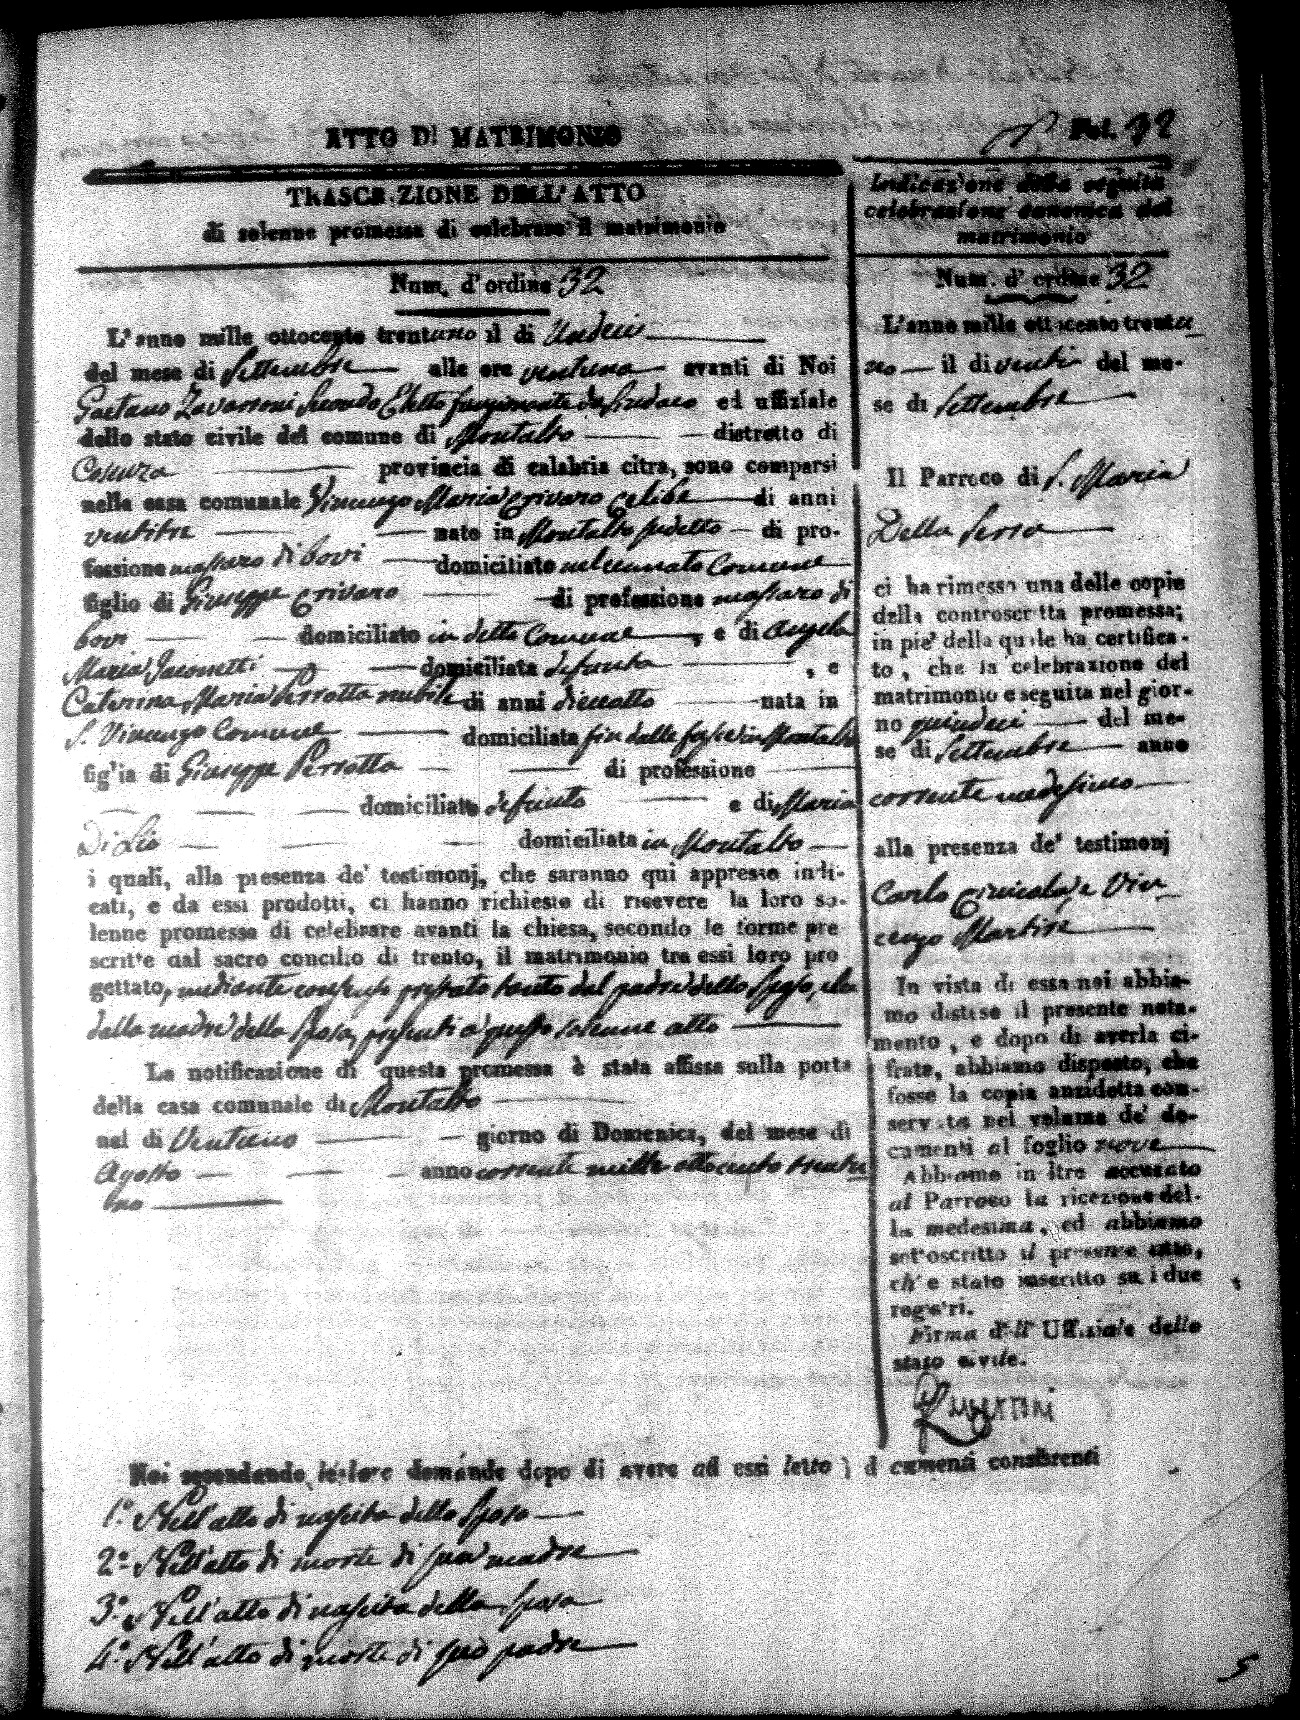 ATTO DI MATRIMONIO
Fol. 32
TRASCRIZIONE DELL' ATTO
di solenne promessa di celebrare il matrimonio
Num. d' ordine 32
L' anno mille ottocento trentuno il di Undeci
del mese di Settembre alle ore ventuna avanti di Noi
Gaetano Zavarroni Secondo Eletto funzionante da Sindaco ed uffiziale
dello stato civile del comune di Montalto distretto di
Cosenza provincia di calabria citra, sono comparsi
nella casa comunale Vincenzo Maria Crivaro Celibe di anni
ventitre nato in Montalto sudetto di pro-
fessione massaro di bovi domiciliato nel cennato Comune
figlio di Giuseppe Crivaro di professione massaro di
bovi domiciliato in detto Comune, e di Angela
Maria Jaconetti domiciliata defunta, e
Caterina Maria Perrotta nubile di anni dieciotto nata in
S. Vincenzo Comune domiciliata fin dalle fasce in Montalto
figlia di Giuseppe Perrotta di professione
domiciliato defunto e di Maria
Di Lio domiciliata in Montalto
i quali, alla presenza de' testimonj, che saranno qui appresso indi-
cati, e da essi prodotti, ci hanno richiesto di ricevere la loro so-
lenne promessa di celebrare avanti la chiesa, secondo le forme pre
scritte dal sacro concilio di trento, il matrimonio tra essi loro pro
gettato, mediante consenso prestato tanto dal padre dello Sposo, che
dalla madre della Sposa, presenti a questo solenne atto
La notificazione di questa promessa è stata affissa sulla porta
della casa comunale di Montalto
nel di Ventuno giorno di Domenica, del mese di
Agosto anno corrente mille ottocento trentu
no
Indicazione della seguita
celebrazione canonica del
matrimonio
Num. d' ordine 32
L' anno mille ottocento trentu
no il di venti del me-
se di Settembre
Il Parroco di S. Maria
Della Serra
ci ha rimesso una delle copie
della controscritta promessa;
in piè della quale ha certifica-
to, che la celebrazione del
matrimonio e seguita nel gior-
no quindeci del me-
se di Settembre anno
corrente medesimo
alla presenza de' testimonj
Carlo e Vin
cenzo Martire
In vista di essa noi abbia-
mo disteso il presente nota-
mento, e dopo di averla ci-
frata, abbiamo disposto, che
fosse la copia anzidetta con-
servata nel volume de' do-
camenti al foglio nove
Abbiamo in ltre accusato
al Parroco la ricezione del-
la medesima, ed abbiamo
sottoscritto il presente atto,
ch' e stato inscritto su i due
registri.
Firma dell' Uffiziale dello
stato civile.
Noi secondando le loro domande dopo di avere ad essi letto i documenti consistenti
1.º Nell' atto di nascita dello Sposo
2.º Nell' atto di morte di sua madre
3.º Nell' atto di nascita della Sposa
4.º Nell' atto di morte di suo padre
5